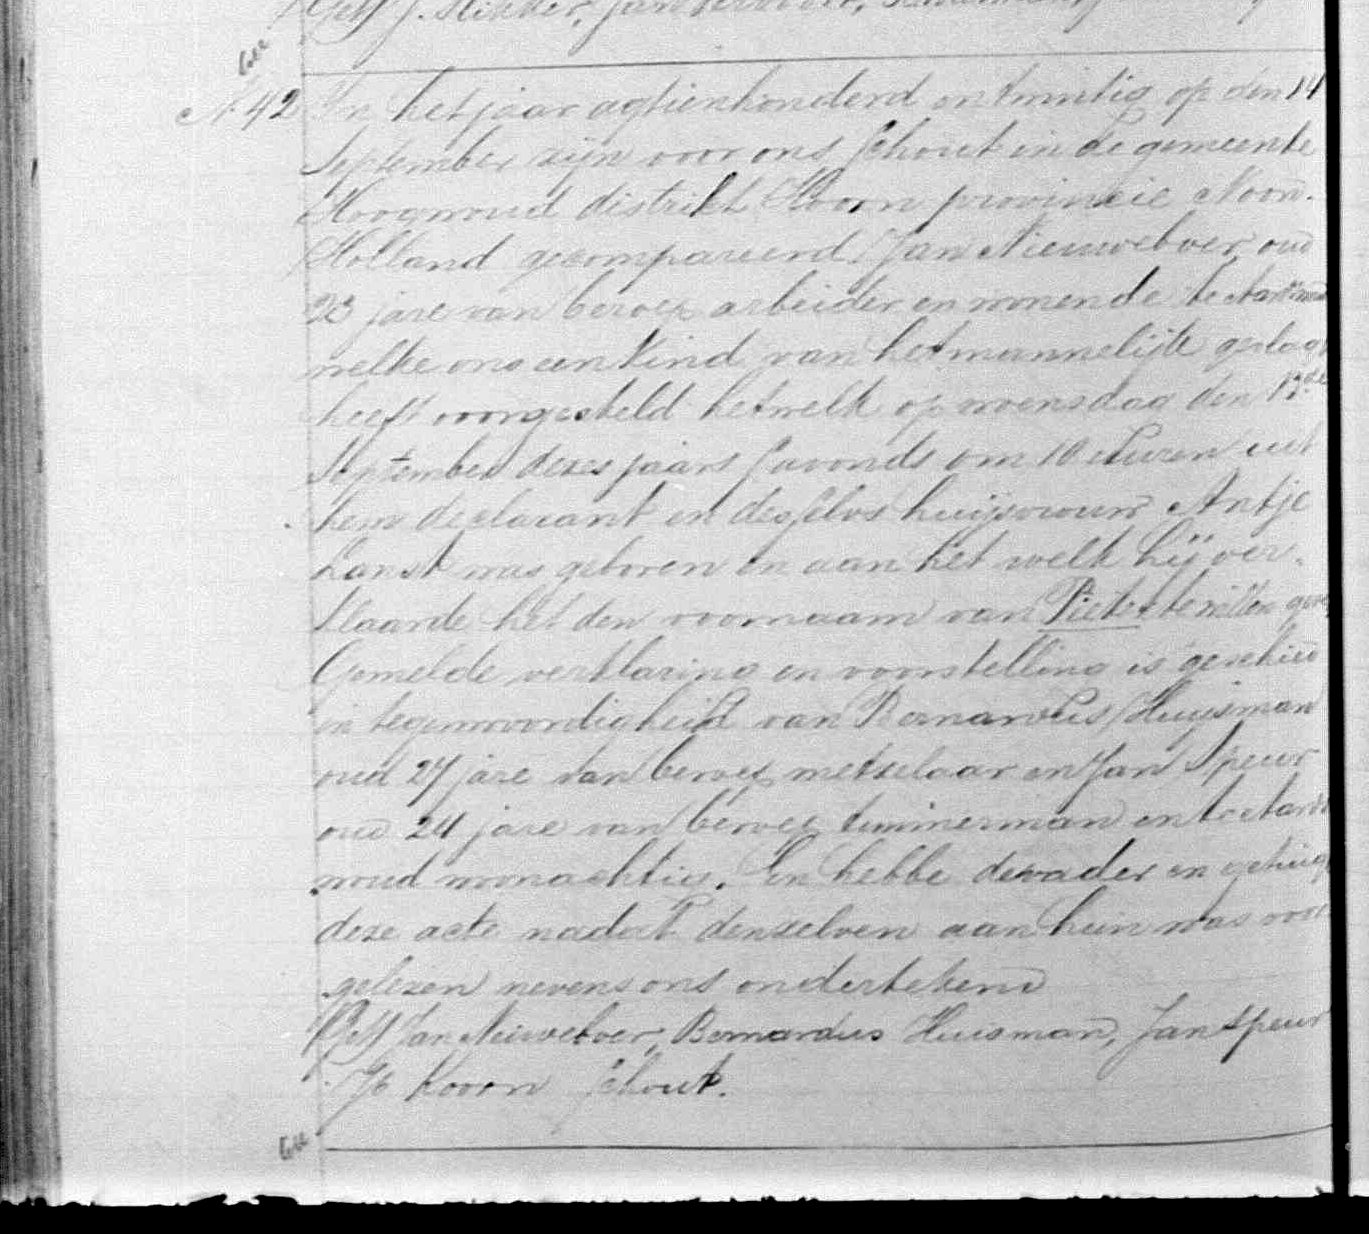 Get J. Slikker, Jan
N 42 In het jaar agtienhonderd en twintig op den 14
September zijn voor ons Schout in de gemeente
Hoogwoud distrikt Hoorn provinsie Noord-
Holland gecompareerd Jan Nieuweboer oud
23 jare van beroep arbeider en wonende te Aartswoud
welke ons een kind van het mannelijk geslagt
heeft voorgesteld hetwelk op woensdag den 13de
September dezes jaars savonds om 10 uuren uit
hem declarant en deszelvs huijsvrouw Antje
Lanst was geboren en aan het welk hij ver-
klaarde het den voornaam van Pieter te willen geve
Gemelde verklaring en voorstelling is geschied
in tegenwoordigheid van Bernardus Huijsman
oud 27 jare van beroep metselaar en Jan Speur
oud 24 jare van beroep timmerman en te Aards
woud woonachtig. En hebbe de vader en getuige
deze acte nadat denzelven aan hun was voor
gelezen nevens ons ondertekend
Get Jan Nieuweboer, Bernardus Huisman, Jan Speur
Jb Koorn Schout.